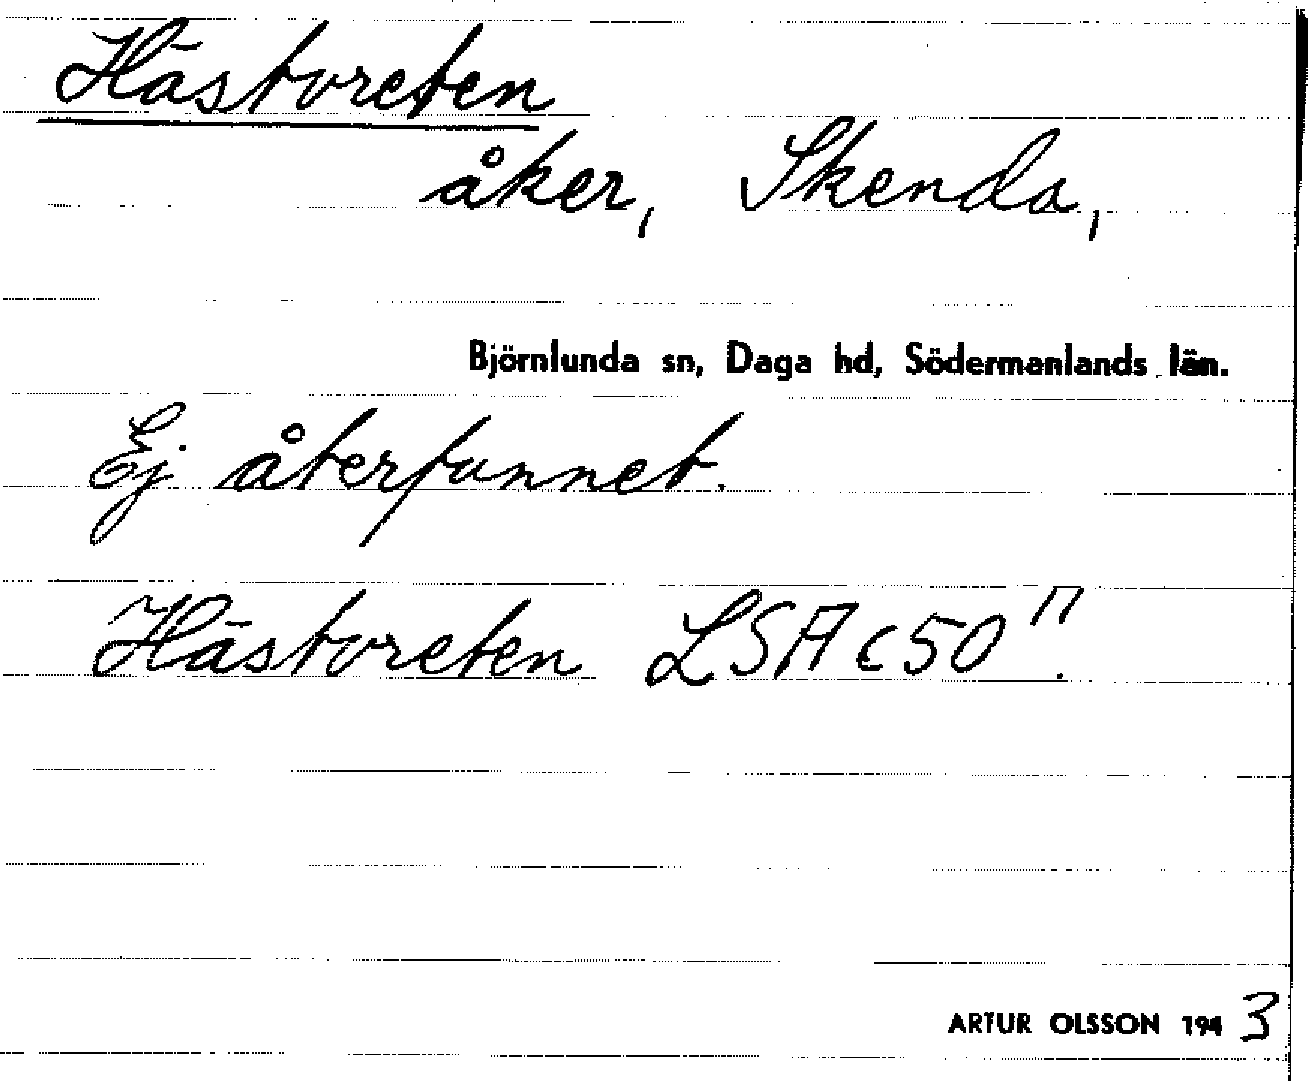 Hästvreten
åker, Skenda,
Björnlunda sn, Daga hd, Södermanlands län.
Ej återfunnet.
Hästvreten LSA c50".
ARTUR OLSSON 1943